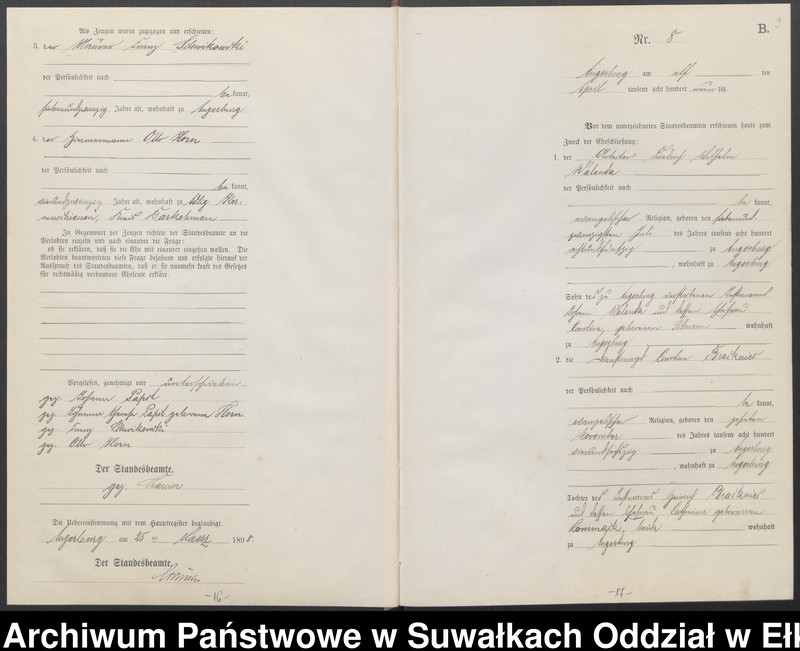 Als Zeugen waren zugezogen und erschienen:
3. der Maurer Franz
der Persönlichkeit nach
be kannt,
siebenundzwanzig Jahre alt, wohnhaft zu Angerburg
4. der Zimmermann Otto Horn
der Persönlichkeit nach
be kannt,
Jahre alt, wohnhaft zu
Kreis Darkehmen
In Gegenwart der Zeugen richtete der Standesbeamte an die
Verlobten einzeln und nach einander die Frage:
ob sie erklären, daß sie die Ehe mit einander eingehen wollen. Die
Verlobten beantworteten diese Frage bejahend und erfolgte hierauf der
Ausspruch des Standesbeamten, daß er sie nunmehr kraft des Gesetzes
für rechtmäßig verbundene Eheleute erkläre.
Vorgelesen, genehmigt und unterschrieben
gez. Johann Papst
gez. Johanna Papst geborene Horn
gez. Franz
gez. Otto Horn
Der Standesbeamte.
gez.
Die Uebereinstimmung mit dem Hauptregister beglaubigt.
Angerburg am 25 ten März 1890.
Der Standesbeamte.
-16-
B.
Nr. 8.
Angerburg am elf ten
April tausend acht hundert neun zig
Vor dem unterzeichneten Standesbeamten erschienen heute zum
Zweck der Eheschließung:
1. der Arbeiter Friedrich Wilhelm
Kalenda
der Persönlichkeit nach
be kannt,
evangelischer Religion, geboren den siebenund-
zwanzigsten Juli des Jahres tausend acht hundert
achtundfünfzig zu Angerburg
, wohnhaft zu Angerburg
Sohn des zu Angerburg verstorbenen
Johann Kalenda und dessen Ehefrau
Caroline, geborenen wohnhaft
zu Angerburg
2. die Dienstmagd Caroline Braiknies
der Persönlichkeit nach
be kannt,
evangelischer Religion, geboren den zehnten
November des Jahres tausend acht hundert
vierundsechzig zu Angerburg
, wohnhaft zu Angerburg
Tochter des Heinrich Braiknies
und dessen Ehefrau geborenen
wohnhaft
zu Angerburg
-17-
Archiwum Państwowe w Suwałkach Oddział w Ełk